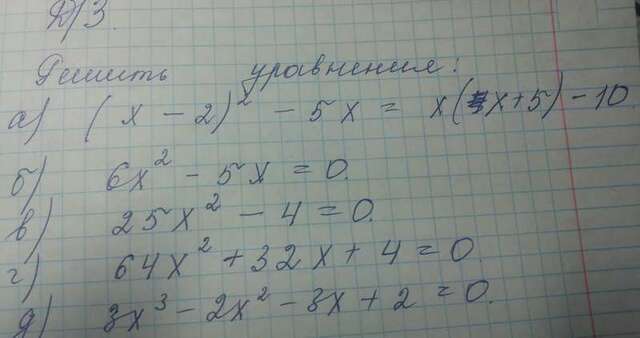 Д/З.
Решить уравнения:
а) (x - 2)² - 5x = x(x+5) - 10
б) 6x² - 5x = 0.
в) 25x² - 4 = 0.
г) 64x² + 32x + 4 = 0.
д) 3x³ - 2x² - 3x + 2 = 0.